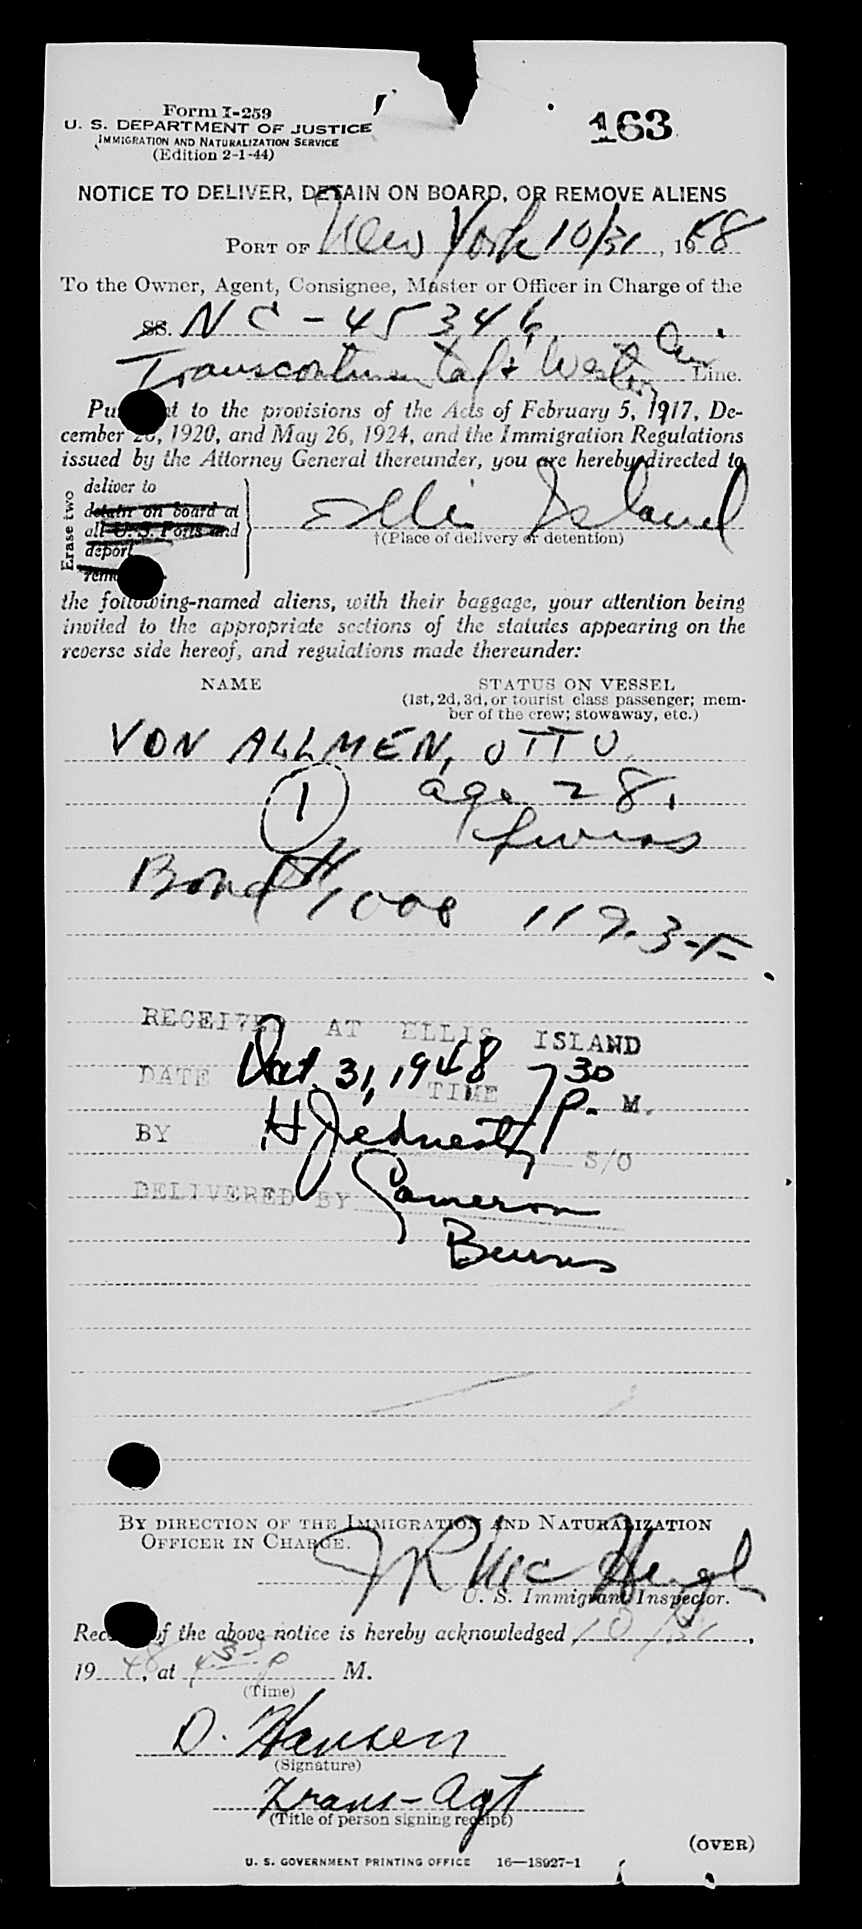 Form I-259
U. S. DEPARTMENT OF JUSTICE
IMMIGRATION AND NATURALIZATION SERVICE
(Edition 2-1-44)
163
NOTICE TO DELIVER, DETAIN ON BOARD, OR REMOVE ALIENS
PORT OF New York 10/31, 1948
To the Owner, Agent, Consignee, Master or Officer in Charge of the
SS. NC-45346
Transcontinental & Western Air Line.
Pu t to the provisions of the Acts of February 5, 1917, De-
cember 26, 1920, and May 26, 1924, and the Immigration Regulations
issued by the Attorney General thereunder, you are hereby directed to
Erase two
deliver to
detain on board at
all U. S. Ports and
deport
Ellis Island
†(Place of delivery or detention)
the following-named aliens, with their baggage, your attention being
invited to the appropriate sections of the statutes appearing on the
reverse side hereof, and regulations made thereunder:
NAME STATUS ON VESSEL
(1st, 2d, 3d, or tourist class passenger; mem-
ber of the crew; stowaway, etc.)
VON ALLMEN, OTTO
1 age 28.
Swiss
Bond #1000 119.3-F
RECEIVED AT ELLIS ISLAND
DATE Oct. 31, 1948 TIME 7 30 P. M.
BY H S/O
DELIVERED BY Cameron
Burns
BY DIRECTION OF THE IMMIGRATION AND NATURALIZATION
OFFICER IN CHARGE.
JR McHugh
U. S. Immigrant Inspector.
Rec of the above notice is hereby acknowledged 10/31,
1948, at M.
(Time)
D. Hansen
(Signature)
Trans-Agt
(Title of person signing receipt)
(OVER)
U. S. GOVERNMENT PRINTING OFFICE 16—18927-1